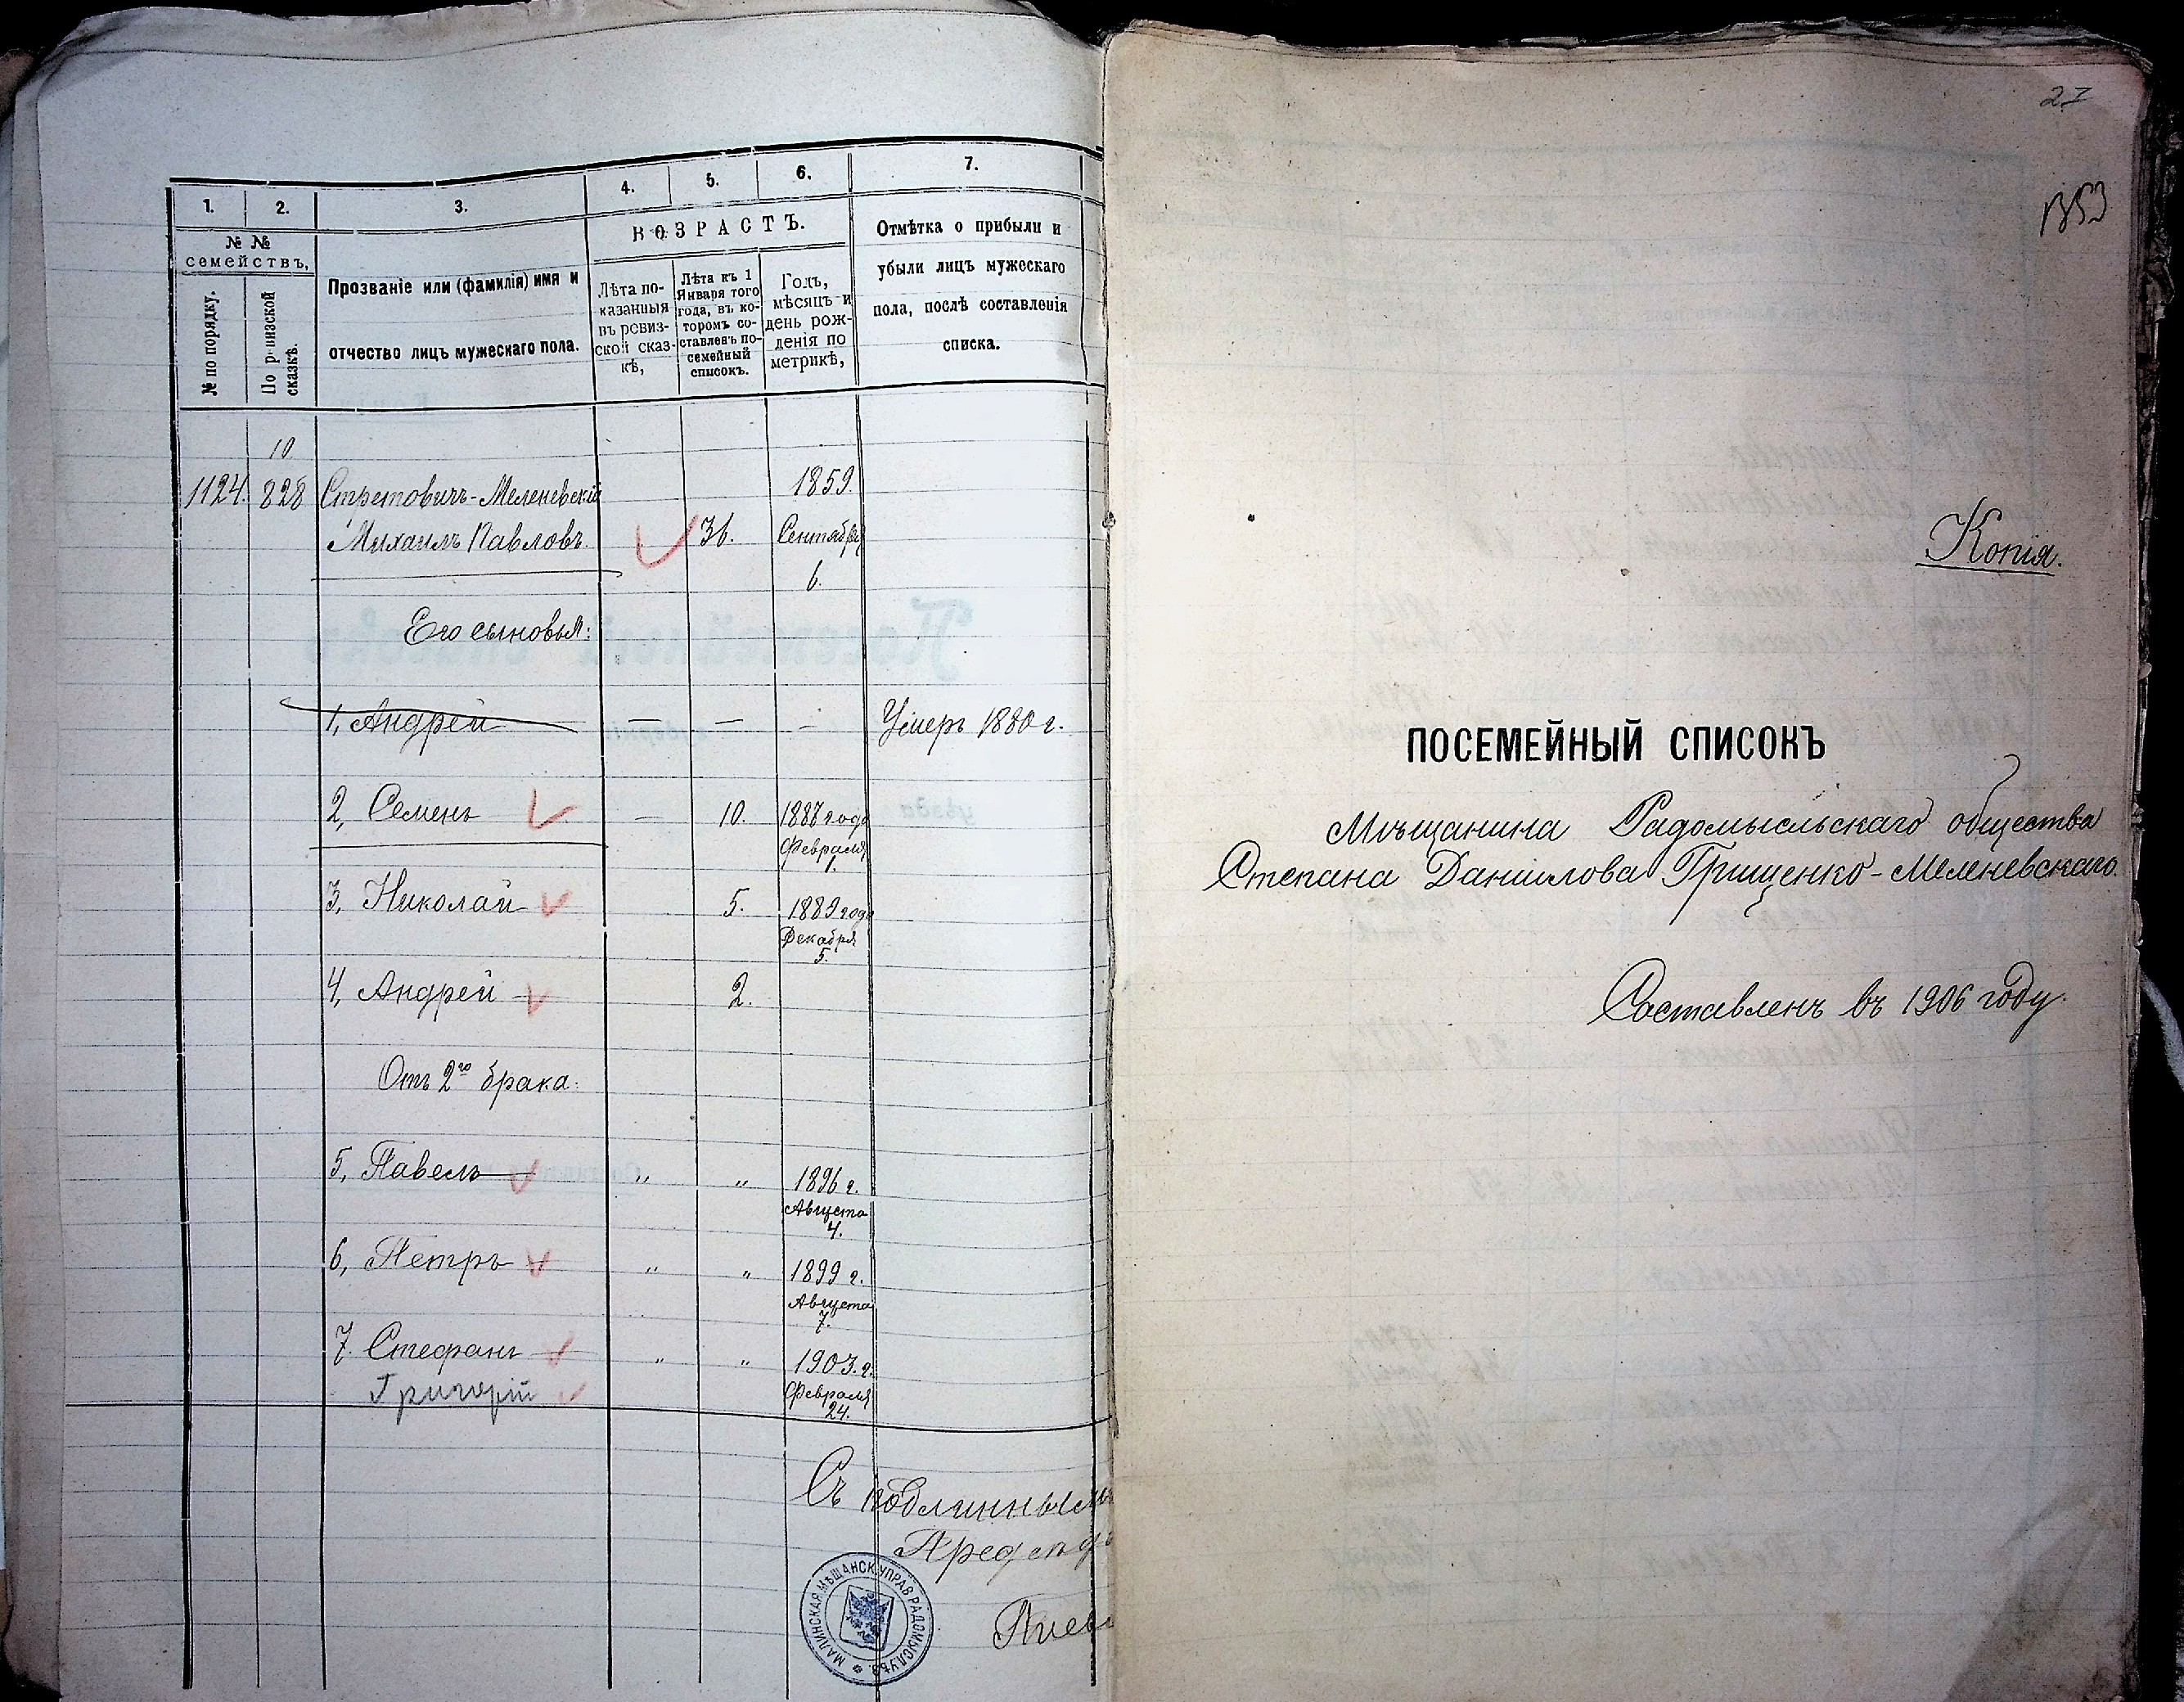 1.
2.
3.
4.
5.
6.
7.
№ №
семействъ,
№ по порядку.
По ревизской
сказкѣ.
Прозваніе или (фамилія) имя и
отчество лицъ мужескаго пола.
ВОЗРАСТЪ.
Лѣта по-
казанныя
въ ревиз-
ской сказ-
кѣ,
Лѣта къ 1
Января того
года, въ ко-
торомъ со-
ставленъ по-
семейный
списокъ.
Годъ,
мѣсяцъ и
день рож-
денія по
метрикѣ,
Отмѣтка о прибыли и
убыли лицъ мужескаго
пола, послѣ составленія
списка.
10
1124. 828 Стретовичъ-Меленевскій 1859.
Михаилъ Павловъ. 36. Сентября
6.
Его сыновья:
1, Андрей — — — Умеръ 1880 г.
2, Семенъ — 10. 1887 года
Февраля
1.
3, Николай 5. 1889 года
Декабря
5.
4, Андрей 2.
Отъ 2го брака:
5, Павелъ " " 1896 г.
Августа
4.
6, Петръ " " 1899 г.
Августа
7.
7. Стефанъ " " 1903. г.
Григорій Февраля
24.
Съ подлиннымъ
Предсѣд
МАЛИНСКАЯ МѢЩАНСК. УПРАВ. РАДОМЫСЛ. УѢЗ.
27
Копія.
ПОСЕМЕЙНЫЙ СПИСОКЪ
Мѣщанина Радомысльскаго общества
Степана Даніилова Грищенко-Меленевскаго.
Составленъ въ 1906 году.